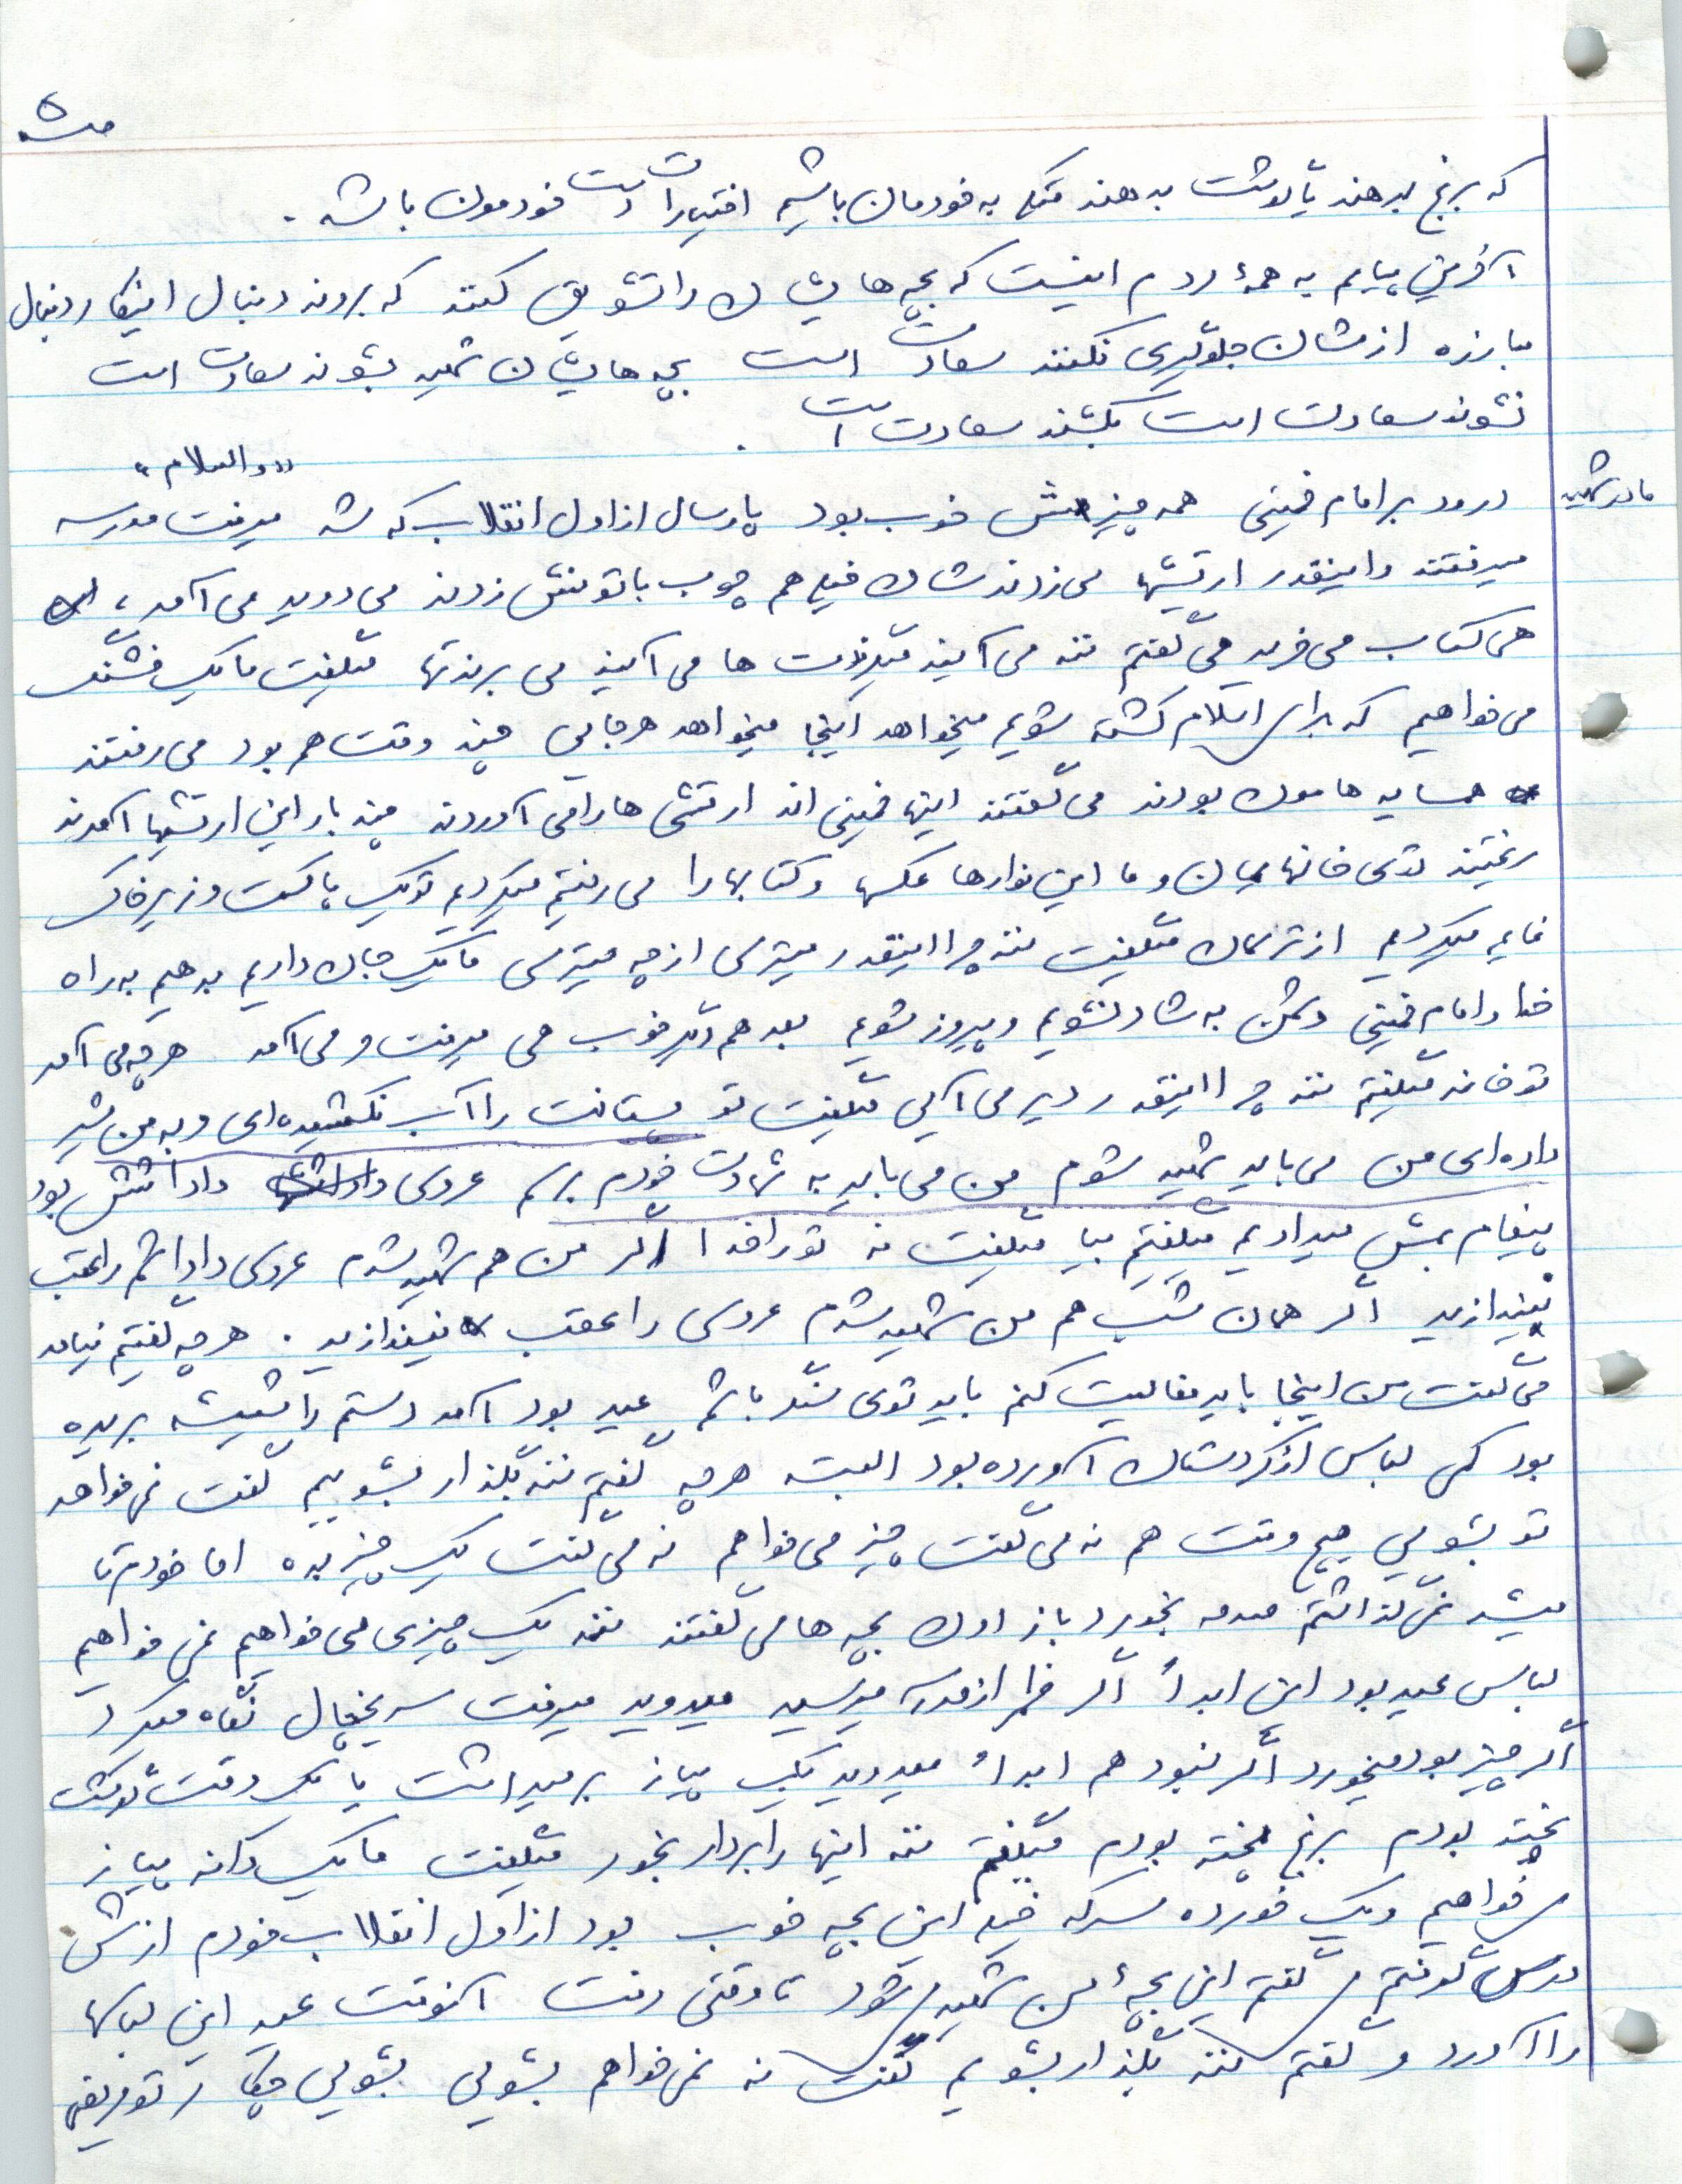 ص ۵
که برنج بدهند یا گوشت بدهند متکی به خودمان باشیم اختیارات دست خودمون باشه .
آخرین پیامم به همهٔ مردم اینست که بچه هایشان را تشویق کنند که بروند دنبال اینکار دنبال
مبارزه ازشان جلوگیری نکنند سعادت است بچه هایشان شهید بشوند سعادت است
نشوند سعادت است بکشند سعادت است .
« والسلام »
مادر شهید
درود بر امام خمینی همه چیزش خوب بود پارسال از اول انقلاب که شد میرفت مدرسه
میرفتند و اینقدر ارتشیها می زدندشان خیلی هم چوب باتو منش زدند می دوید می آمد ،
هی کتاب می خرید می گفتم ننه می آیند میگیرنت ها می آیند می برندتها میگفت ما یک فشنگ
می خواهیم که برای اسلام کشته شویم میخواهد اینجا میخواهد هر جایی چند وقت هم بود می رفتند
همسایه هامون بودند می گفتند اینها خمینی اند ارتشی ها را می آوردند چند بار این ارتشیها آمدند
ریختند توی خانهایمان و ما این نوارها عکسها و کتابها را می رفتیم میکردیم تو یک پاکت و زیر خاک
قایم میکردیم از ترسمان میگفت ننه چرا اینقدر میترسی از چه میترسی ما یک جان داریم بدهیم به راه
خدا و امام خمینی دشمن به شاد نشویم و پیروز شویم بعد هم دیگر خوب هی میرفت و می آمد هر چه می آمد
تو خانه میگفتم ننه چرا اینقدر دیر می آئی میگفت تو پستانت را آب نکشیده ای و به من شیر
داده ای من می باید شهید شوم من می باید به شهادت خودم برسم عروسی داداشش بود
پیغام بهش میدادیم میگفتیم بیا میگفت نه تو را خدا اگر من هم شهید شدم عروسی داداشم را عقب
نیندازید اگر همان شب هم من شهید شدم عروسی را عقب نیندازید . هر چه گفتیم نیامد
می گفت من اینجا باید فعالیت کنم باید توی سنگر باشم عید بود آمد دستم را شیشه بریده
بود کمی لباس از کردستان آورده بود البته هر چه گفتم ننه بگذار بشویم گفت نمی خواهد
تو بشویی هیچ وقت هم نه می گفت چیز می خواهم نه می گفت یک چیز بده اما خودم تا
میشد نمی گذاشتم صدمه بخورد باز اون بچه ها می گفتند ننه یک چیزی می خواهیم نمی خواهیم
لباس عید بود این ابداً اگر ظهر از مدرسه میرسید میدوید میرفت سر یخچال نگاه میکرد
اگر چیز بود میخورد اگر نبود هم ابداً میدوید یک پیاز برمیداشت یا یک وقت گوشت
پخته بودم برنج پخته بودم میگفتم ننه اینها را بردار بخور میگفت ما یک دانه پیاز
میخواهیم و یک خورده سرکه خیلی این بچه خوب بود از اول انقلاب خودم ازش
درس گرفتم و گفتم این بچهٔ من شهید میشود تا وقتی رفت آنوقت عید این لباسها
را آورد و گفتم ننه بگذار بشویم گفت نه نمی خواهم بشویی بشویی چکار تو مریضی